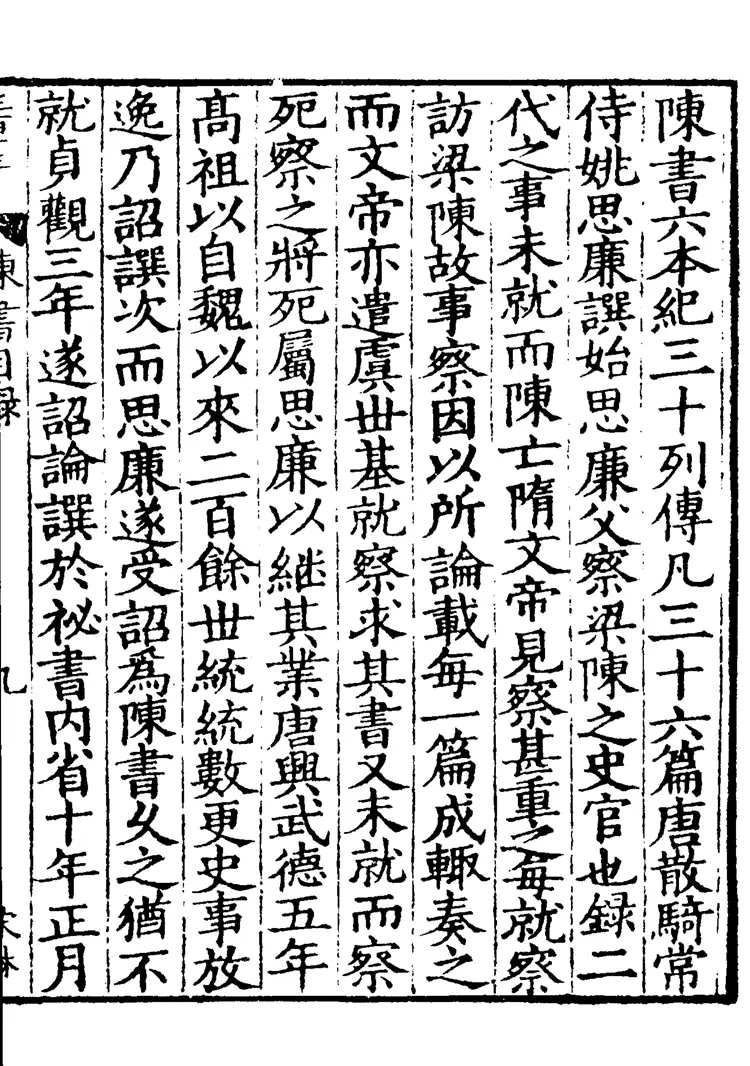 陳書六本紀三十列傳凡三十六篇唐散騎常
侍姚思廉譔始思廉父察梁陳之史官也録二
代之事未就而陳亡隋文帝見察甚重之每就察
訪梁陳故事察因以所論載每一篇成輙奏之
而文帝亦遣虞丗基就察求其書又未就而察
死察之將死屬思廉以継其業唐興武德五年
髙祖以自魏以來二百餘丗統統數更史事放
逸乃詔譔次而思廉遂受詔爲陳書乆之猶不
就貞觀三年遂詔論譔於祕書内省十年正月
陳書目録
九